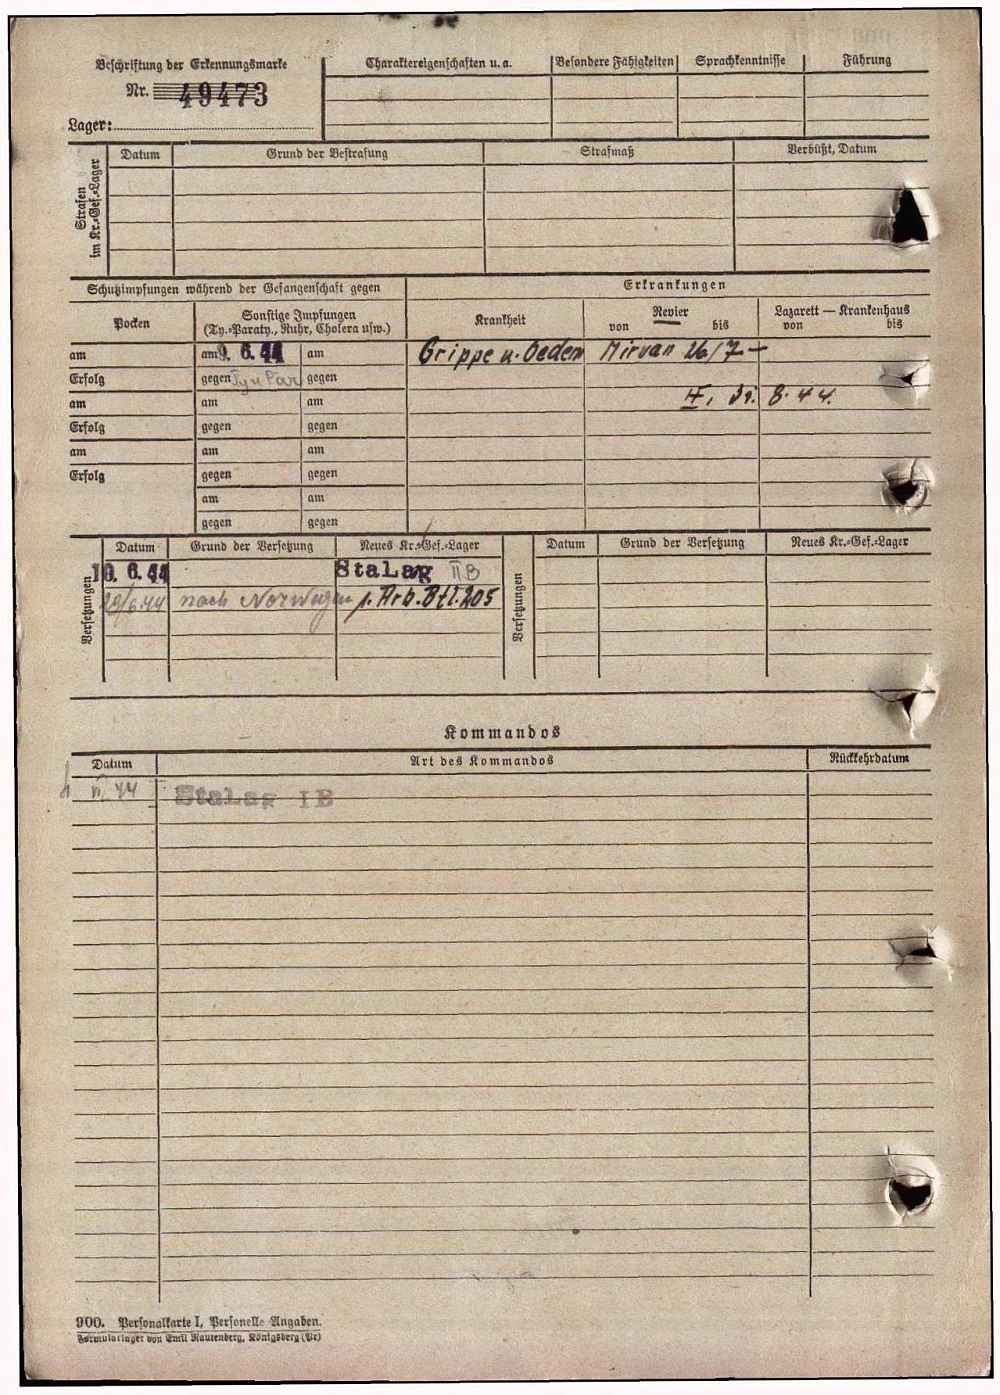 Beschriftung der Erkennungsmarke
Nr. 49473
Lager:
Charaktereigenschaften u. a. Besondere Fähigkeiten Sprachkenntnisse Führung
Strafen im Kr.-Gef.-Lager
Datum Grund der Bestrafung Strafmaß Verbüßt, Datum
Schutzimpfungen während der Gefangenschaft gegen Erkrankungen
Pocken Sonstige Impfungen Krankheit Revier Lazarett — Krankenhaus
(Ty.-Paraty., Ruhr, Cholera usw.) von bis von bis
am am 9. 6. 44 am Grippe u. Oedem Mirvan 26/7 —
Erfolg gegen Ty u Par gegen
am am am 31. 8. 44.
Erfolg gegen gegen
am am am
Erfolg gegen gegen
am am
gegen gegen
Versetzungen
Datum Grund der Versetzung Neues Kr.-Gef.-Lager
10. 6. 44 Stalag II B
29/6.44 nach Norwegen z. Arb. Btl. 205
Versetzungen
Datum Grund der Versetzung Neues Kr.-Gef.-Lager
Kommandos
Datum Art des Kommandos Rückkehrdatum
VI. 44 Stalag I B
900. Personalkarte I, Personelle Angaben.
Formularlager von Emil Rautenberg, Königsberg (Pr)